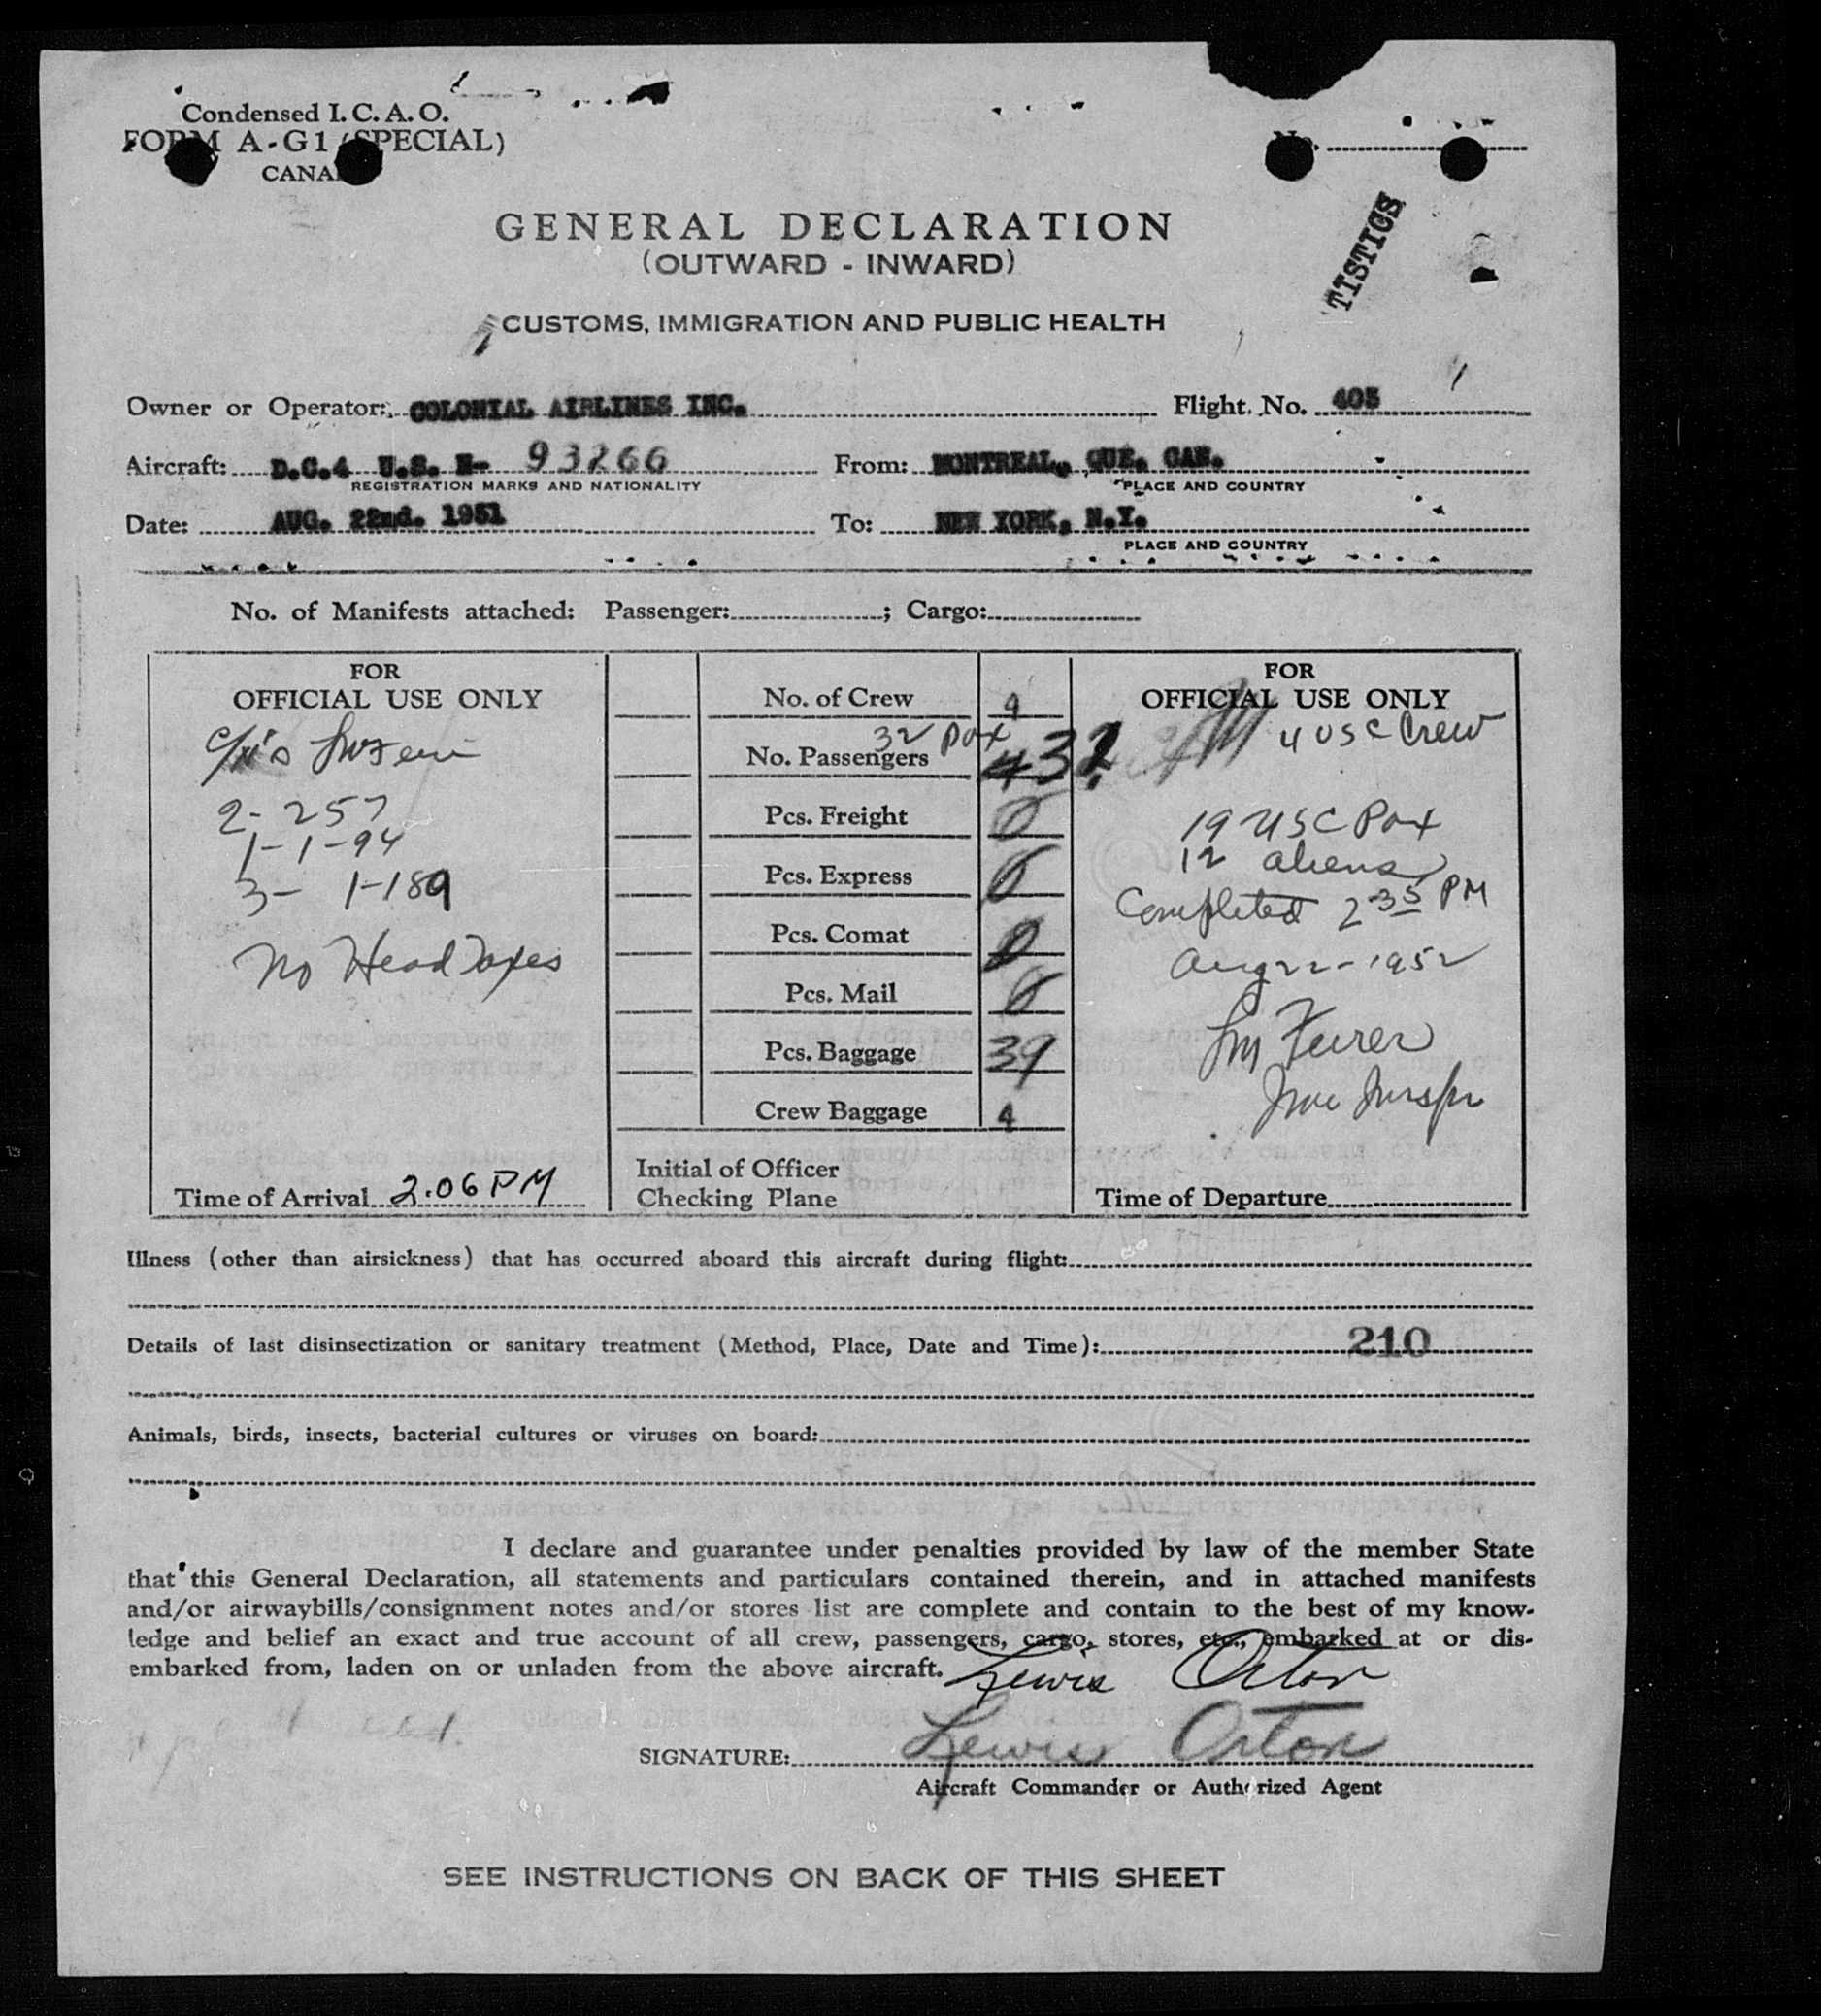 Condensed I. C. A. O.
FORM A-G1 (SPECIAL)
CANA
No.
TISTICS
GENERAL DECLARATION
(OUTWARD - INWARD)
CUSTOMS, IMMIGRATION AND PUBLIC HEALTH
Owner or Operator: COLONIAL AIRLINES INC. Flight. No. 405
Aircraft: D.C.4 U.S. N- 93266 From: MONTREAL, QUE. CAN.
REGISTRATION MARKS AND NATIONALITY PLACE AND COUNTRY
Date: AUG. 22nd. 1951 To: NEW YORK, N.Y.
PLACE AND COUNTRY
No. of Manifests attached: Passenger: ; Cargo:
FOR
OFFICIAL USE ONLY
2-257
1-1-94
3- 1-189
No Head Taxes
Time of Arrival 2.06 PM
No. of Crew 4
32 pax
No. Passengers
Pcs. Freight 0
Pcs. Express 0
Pcs. Comat 0
Pcs. Mail 0
Pcs. Baggage 39
Crew Baggage 4
Initial of Officer
Checking Plane
FOR
OFFICIAL USE ONLY
4 USC Crew
19 USC Pax
12 aliens
Completed 2 35 PM
Aug 22-1952
Time of Departure
Illness (other than airsickness) that has occurred aboard this aircraft during flight:
Details of last disinsectization or sanitary treatment (Method, Place, Date and Time): 210
Animals, birds, insects, bacterial cultures or viruses on board:
I declare and guarantee under penalties provided by law of the member State
that this General Declaration, all statements and particulars contained therein, and in attached manifests
and/or airwaybills/consignment notes and/or stores list are complete and contain to the best of my know-
ledge and belief an exact and true account of all crew, passengers, cargo, stores, etc., embarked at or dis-
embarked from, laden on or unladen from the above aircraft. Lewis Orton
SIGNATURE: Lewis Orton
Aircraft Commander or Authorized Agent
SEE INSTRUCTIONS ON BACK OF THIS SHEET